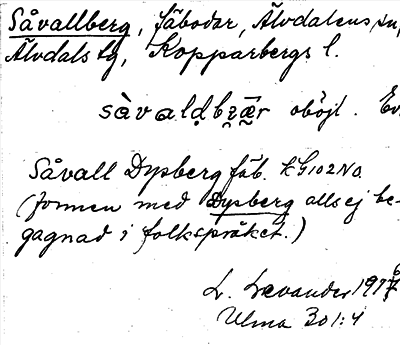 Såvallberg, fäbodar, Älvdalens sn,
Älvdals tg, Kopparbergs l.
oböjl. Ev.
Såvall Dysberg fäb. KG102NO
(formen med Dysberg alls ej be-
gagnad i folkspråket.)
L. Levander 1917
Ulma 301:4